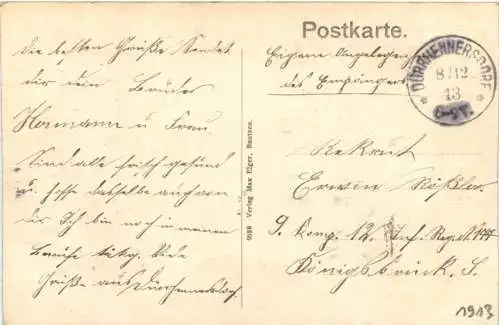 Postkarte.
die besten Grüße sendet
dir dein Bruder
Hermann u Frau.
Sind alle frisch gesund
u. hoffe dasselbe auch von
dir Ich bin noch in meinem
tätig. Viele
Grüße aus Dürrhennersdorf.
9088 Verlag Max Elger, Bautzen.
Eigene Angelegen
des Empfängers
DÜRRHENNERSDORF
8/12
13
Rekrut
Erwin Rößler
9. Komp. 12. Inf. Regt. N. 177
Königsbrück S.
1913